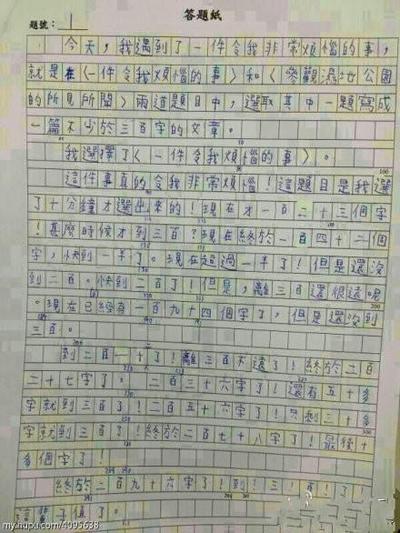 答題紙
題號：1
今天，我遇到了一件令我非常煩惱的事，
就是在〈一件令我煩惱的事〉和〈參觀濕地公園
的所見所聞〉兩道題目中，選取其中一題寫成
一篇不少於三百字的文章。
我選擇了〈一件令我煩惱的事〉。
這件事真的令我非常煩惱！這題目是我選
了十分鐘才選出來的！現在才一百二十三個字
！甚麼時候才到三百？現在終於一百四十二個
字，快到一半了。現在超過一半了！但是還沒
到二百。快到二百了！但是，離三百還很遠呢
。現在已經有一百九十四個字了，但是還沒到
三百。
到二百一十了！離三百不遠了！終於二百
二十七字了。二百三十六字了！還有五十多
字就到三百了！二百五十六字了！只剩三十多
字就到三百了！終於二百七十八字了！最後十
多個字了！
終於二百九十六字了！到！三！百！了！
my.hupu.com/4095638